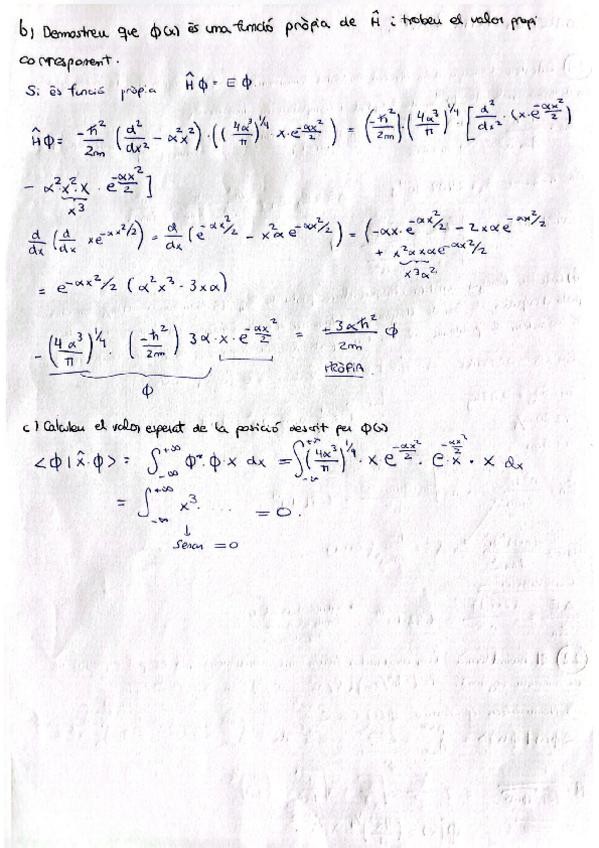 b) Demostreu que ϕ(x) és una funció pròpia de Ĥ i trobeu el valor propi
corresponent.
Si és funció pròpia Ĥϕ = Eϕ
Ĥϕ = -ħ²/2m (d²/dx² - α²x²)·((4α³/π)^1/4 x·e^-αx²/2) = (-ħ²/2m)·(4α³/π)^1/4 [d²/dx²·(x·e^-αx²/2)
- α²·x²·x·e^-αx²/2]
x³
d/dx (d/dx xe^-αx²/2) = d/dx (e^-αx²/2 - x²αe^-αx²/2) = (-αx·e^-αx²/2 - 2xαe^-αx²/2
+ x²αxαe^-αx²/2
x³α²
= e^-αx²/2 (α²x³ - 3xα)
- (4α³/π)^1/4·(-ħ²/2m) 3α·x·e^-αx²/2 = +3αħ²/2m ϕ
ϕ
PRÒPIA
c) Calculeu el valor esperat de la posició descrit per ϕ(x)
<ϕ|x̂·ϕ> = ∫_-∞^+∞ ϕ*·ϕ·x dx = ∫_-∞^+∞ (4α³/π)^1/4 · x e^-αx²/2 · e^-αx²/2·x · x dx
= ∫_-∞^+∞ x³ ..... = 0.
↓
Senar = 0